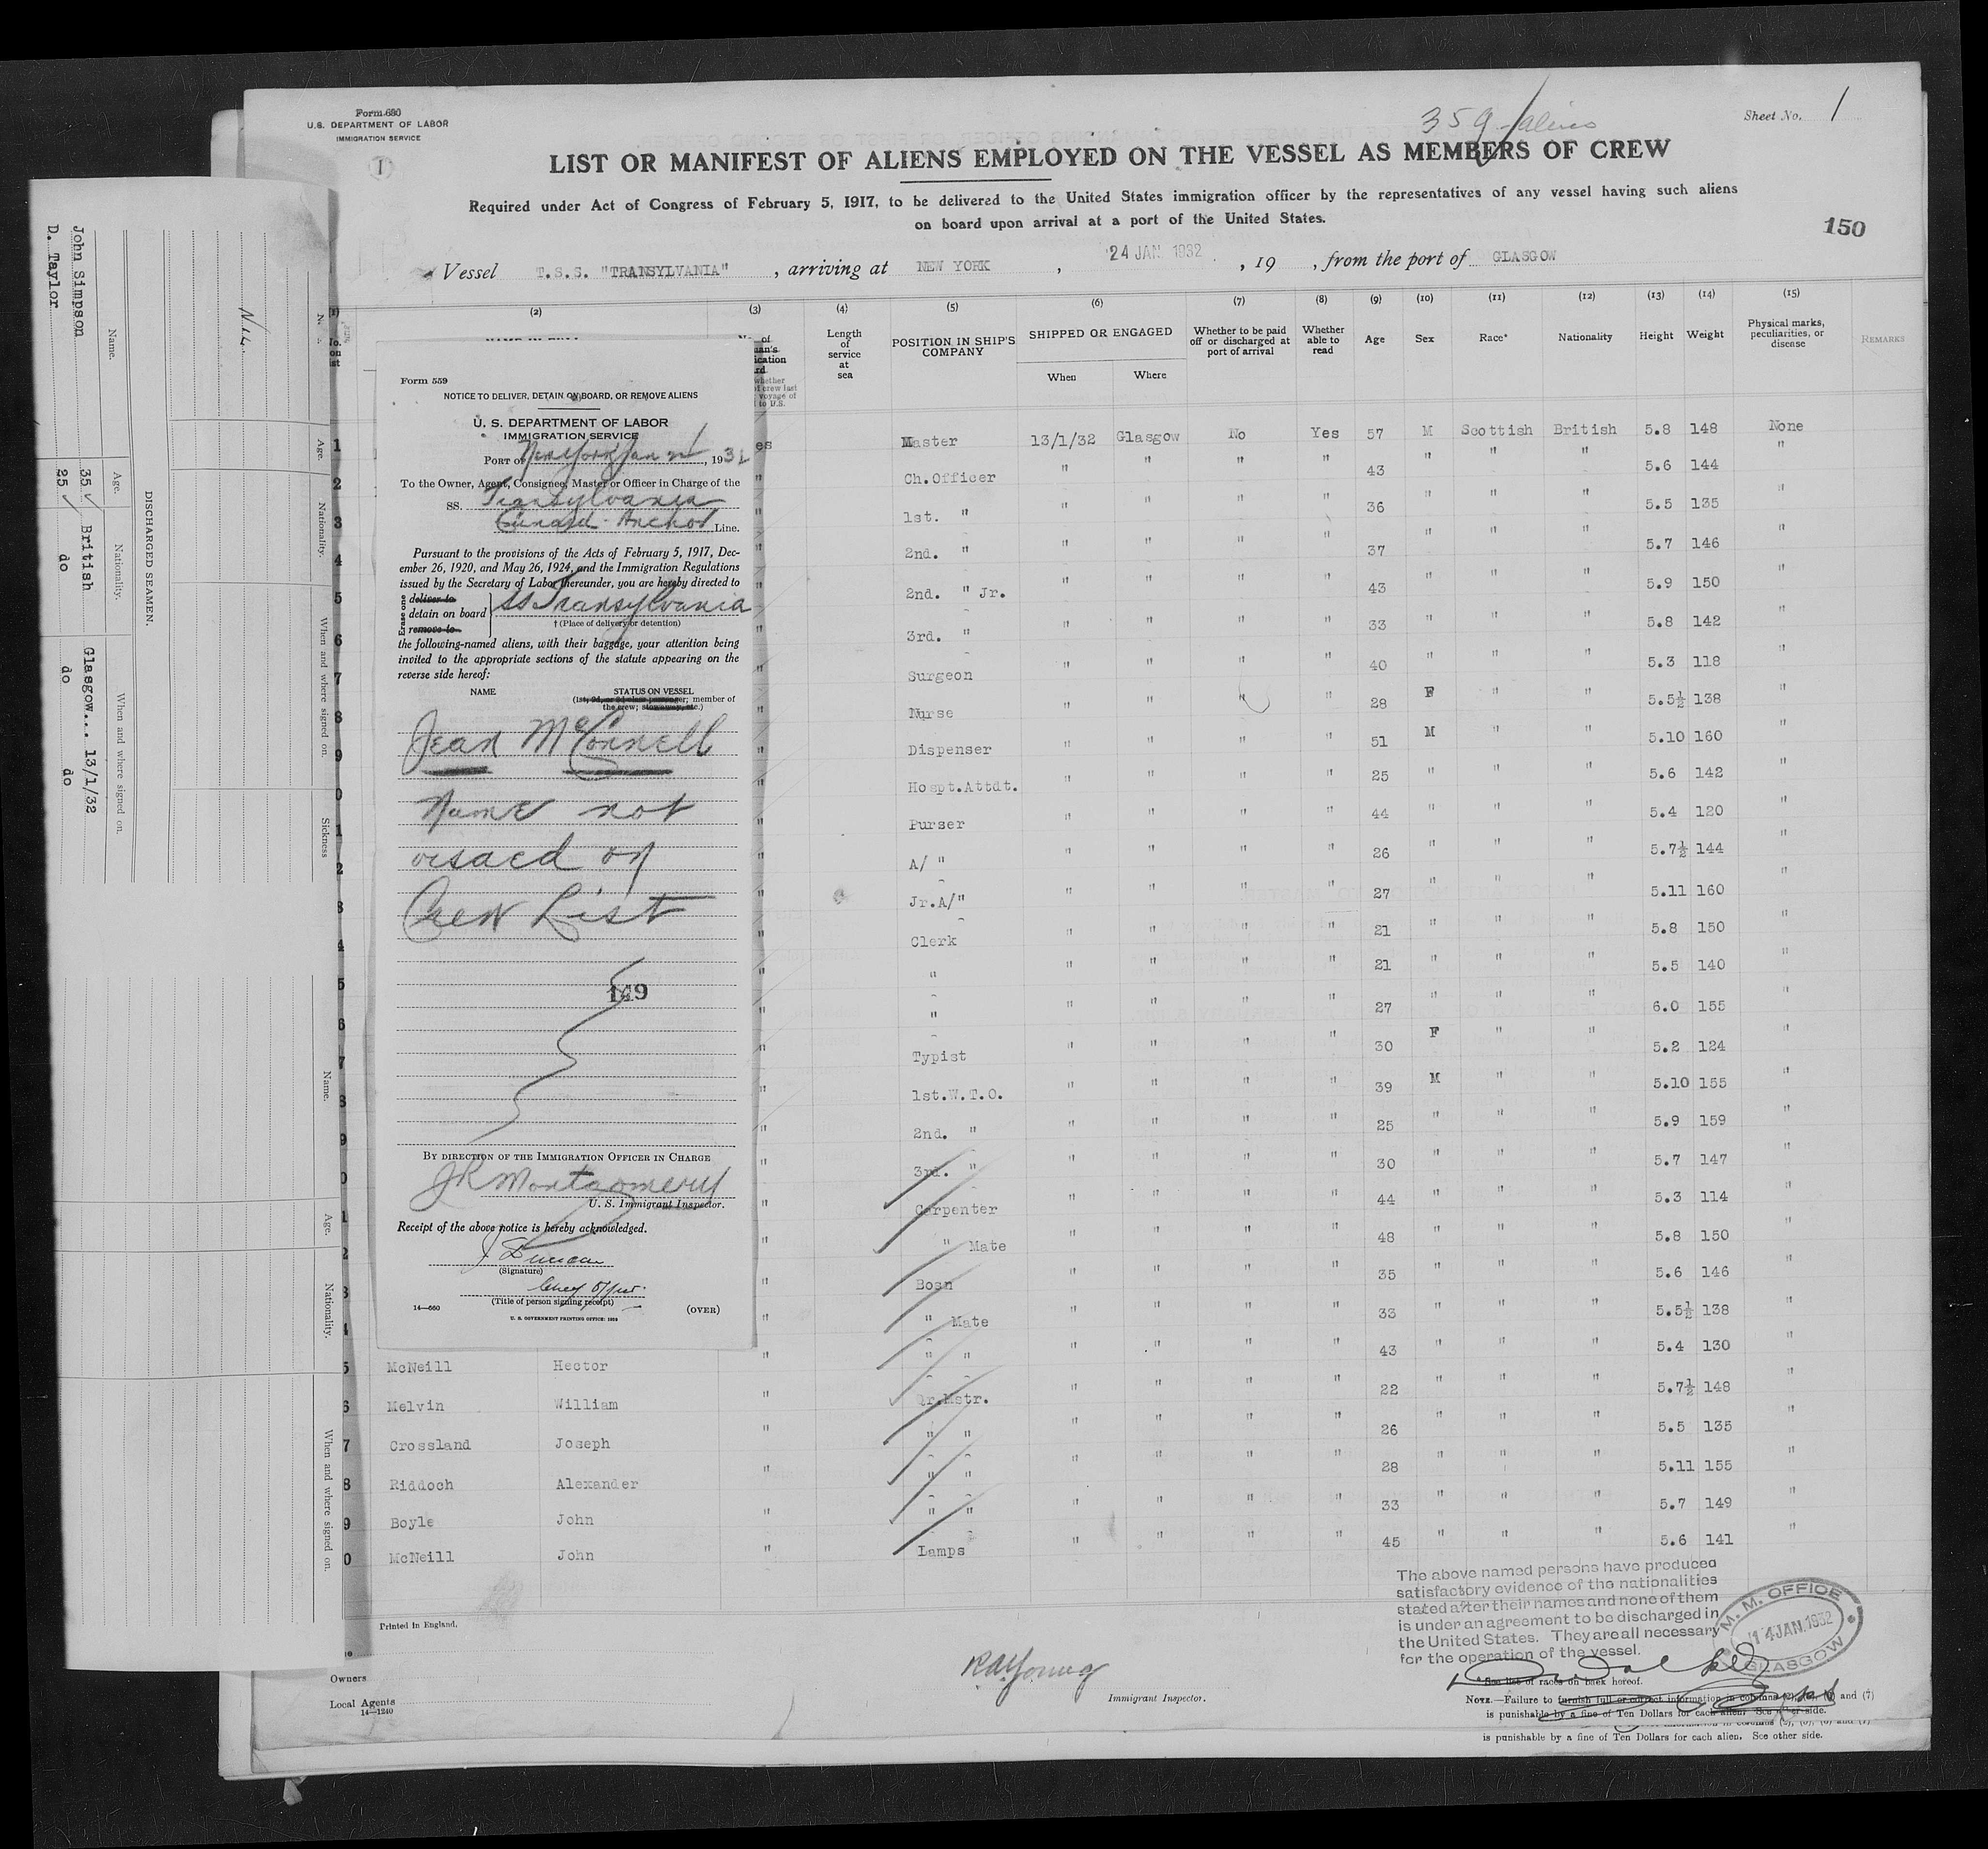 Form 680
U.S. DEPARTMENT OF LABOR
IMMIGRATION SERVICE
1
359 aliens
Sheet No. 1
LIST OR MANIFEST OF ALIENS EMPLOYED ON THE VESSEL AS MEMBERS OF CREW
Required under Act of Congress of February 5, 1917, to be delivered to the United States immigration officer by the representatives of any vessel having such aliens
on board upon arrival at a port of the United States.
150
Vessel T.S.S. "TRANSYLVANIA", arriving at NEW YORK, 24 JAN 1932, 19 , from the port of GLASGOW
(2) (3) (4) (5) (6) (7) (8) (9) (10) (11) (12) (13) (14) (15)
Length of service at sea
POSITION IN SHIP'S COMPANY
SHIPPED OR ENGAGED
When
Where
Whether to be paid off or discharged at port of arrival
Whether able to read
Age
Sex
Race*
Nationality
Height
Weight
Physical marks, peculiarities, or disease
REMARKS
1 es Master 13/1/32 Glasgow No Yes 57 M Scottish British 5.8 148 None
2 " Ch.Officer " " " " 43 " " " 5.6 144 "
3 " 1st. " " " " " 36 " " " 5.5 135 "
4 " 2nd. " " " " " 37 " " " 5.7 146 "
5 " 2nd. " Jr. " " " " 43 " " " 5.9 150 "
6 " 3rd. " " " " " 33 " " " 5.8 142 "
7 " Surgeon " " " " 40 " " " 5.3 118 "
8 " Nurse " " " " 28 F " " 5.5½ 138 "
9 " Dispenser " " " " 51 M " " 5.10 160 "
0 " Hospt.Attdt. " " " " 25 " " " 5.6 142 "
1 " Purser " " " " 44 " " " 5.4 120 "
2 " A/ " " " " " 26 " " " 5.7½ 144 "
3 " Jr.A/" " " " " 27 " " " 5.11 160 "
4 " Clerk " " " " 21 " " " 5.8 150 "
5 " " " " " " 21 " " " 5.5 140 "
6 " " " " " " 27 " " " 6.0 155 "
7 " Typist " " " " 30 F " " 5.2 124 "
8 " 1st.W.T.O. " " " " 39 M " " 5.10 155 "
9 " 2nd. " " " " " 25 " " " 5.9 159 "
0 " 3rd. " " " " " 30 " " " 5.7 147 "
1 " Carpenter " " " " 44 " " " 5.3 114 "
2 " " Mate " " " " 48 " " " 5.8 150 "
3 " Bosn " " " " 35 " " " 5.6 146 "
4 " " Mate " " " " 33 " " " 5.5½ 138 "
5 McNeill Hector " " " " " " " 43 " " " 5.4 130 "
6 Melvin William " Qr.Mstr. " " " " 22 " " " 5.7½ 148 "
7 Crossland Joseph " " " " " " " 26 " " " 5.5 135 "
8 Riddoch Alexander " " " " " " " 28 " " " 5.11 155 "
9 Boyle John " " " " " " " 33 " " " 5.7 149 "
0 McNeill John " Lamps " " " " 45 " " " 5.6 141 "
Form 559
NOTICE TO DELIVER, DETAIN ON BOARD, OR REMOVE ALIENS
U. S. DEPARTMENT OF LABOR
IMMIGRATION SERVICE
PORT OF New York Jan 24, 1932
To the Owner, Agent, Consignee, Master or Officer in Charge of the
SS. Transylvania
Cunard Anchor Line.
Pursuant to the provisions of the Acts of February 5, 1917, Dec-
ember 26, 1920, and May 26, 1924, and the Immigration Regulations
issued by the Secretary of Labor thereunder, you are hereby directed to
Erase one
deliver to
detain on board SS Transylvania
remove to
† (Place of delivery or detention)
the following-named aliens, with their baggage, your attention being
invited to the appropriate sections of the statute appearing on the
reverse side hereof:
NAME
STATUS ON VESSEL
(1st, 2d, or 3d class passenger; member of
the crew; stowaway, etc.)
Jean McConnell
Name not
visaed on
Crew List
149
BY DIRECTION OF THE IMMIGRATION OFFICER IN CHARGE
JR Montgomery
U. S. Immigrant Inspector.
Receipt of the above notice is hereby acknowledged.
J Duncan
(Signature)
Chief Offr.
(Title of person signing receipt)
14—660
(OVER)
U. S. GOVERNMENT PRINTING OFFICE: 1929
DISCHARGED SEAMEN.
Name.
Age.
Nationality.
When and where signed on.
John Simpson 35 British Glasgow... 13/1/32
D. Taylor 25 do do do
Nil.
Age.
Nationality.
When and where signed on.
Sickness
Name.
Age.
Nationality.
When and where signed on.
Printed in England.
Owners
Local Agents
14—1240
RA Young
Immigrant Inspector.
The above named persons have produced
satisfactory evidence of the nationalities
stated after their names and none of them
is under an agreement to be discharged in
the United States. They are all necessary
for the operation of the vessel.
M. M. OFFICE
14 JAN. 1932
GLASGOW
*See list of races on back hereof.
NOTE.—Failure to furnish full or correct information in columns (2), (5), (6) and (7)
is punishable by a fine of Ten Dollars for each alien. See other side.
is punishable by a fine of Ten Dollars for each alien. See other side.